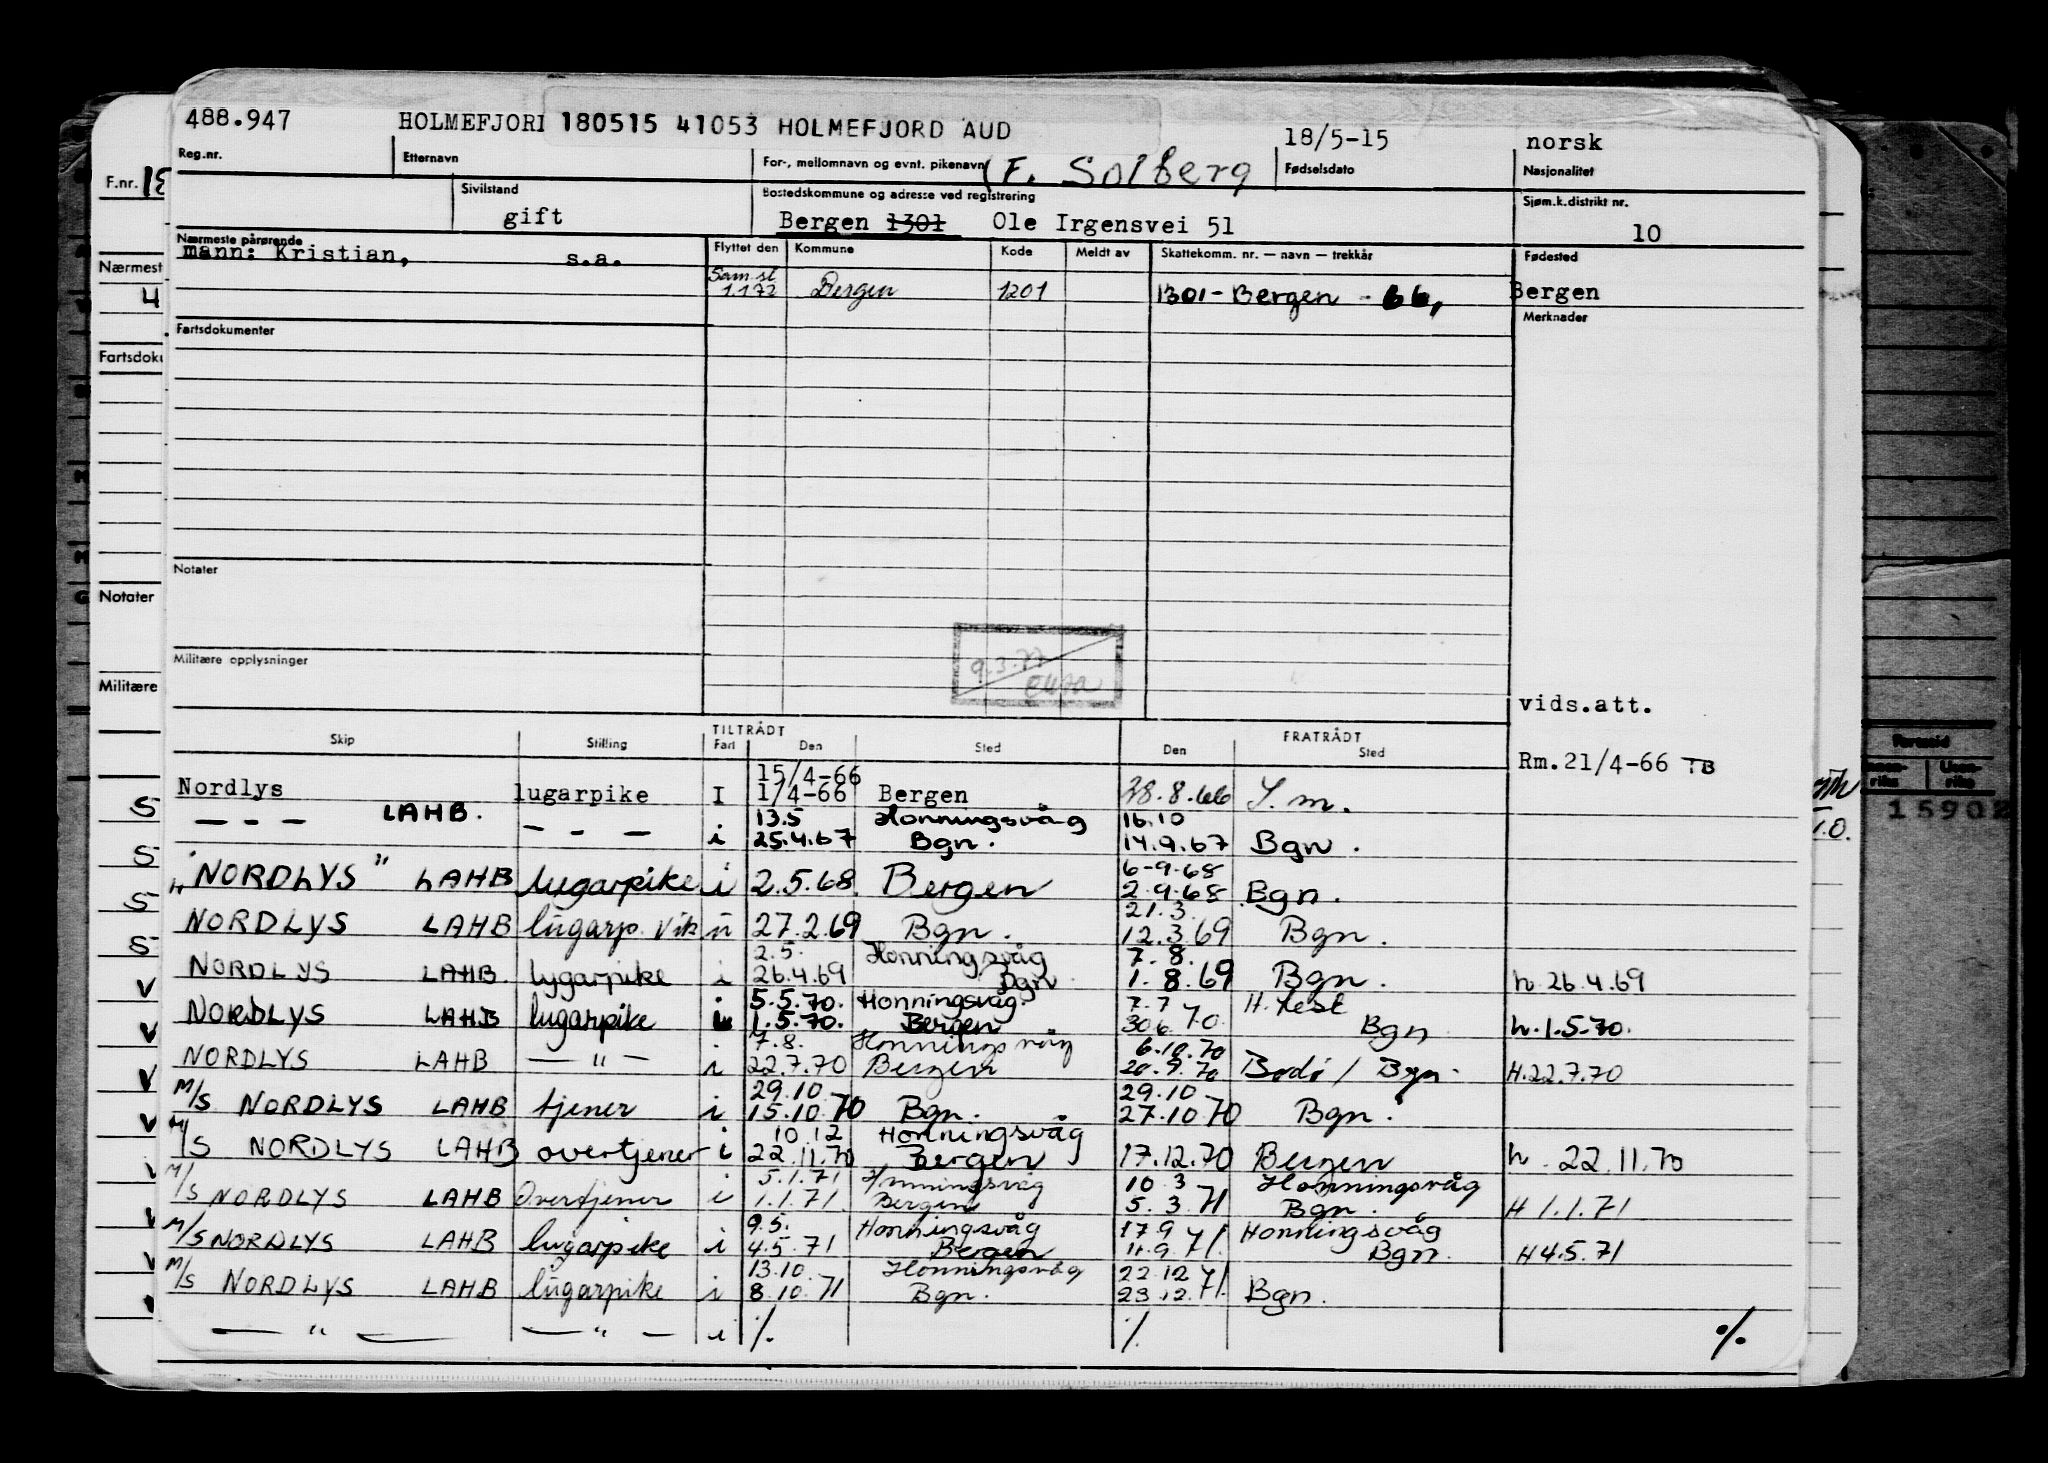 488.947 HOLMEFJORI 180515 41053 HOLMEFJORD AUD 18/5-15 norsk
Reg.nr. Etternavn For-, mellomnavn og evnt. pikenavn (F. Solberg Fødselsdato Nasjonalitet
F.nr. 18
Sivilstand Bostedskommune og adresse ved registrering Sjøm.k.distrikt nr.
gift Bergen 1301 Ole Irgensvei 51 10
Nærmeste pårørende Flyttet den Kommune Kode Meldt av Skattekomm. nr. — navn — trekkår Fødested
mann: Kristian, s.a.
Nærmest
Sam.sl
1.1.72 Bergen 1201 1301 - Bergen - 66, Bergen
4
Fartsdokumenter Merknader
Fartsdoku
Notater
Notater
Militære opplysninger
Militære
9.3.77
vids.att.
TILTRÅDT FRATRÅDT
Skip Stilling Fart Den Sted Den Sted
Rm.21/4-66 TB
15/4-66
Nordlys lugarpike I 1/4-66 Bergen 28.8.66 S.m.
S
— — — LAHB. — — — i 13.5 Honningsvåg 16.10
25.4.67 Bgn. 14.9.67 Bgn.
S
6-9-68
"NORDLYS" LAHB lugarpike i 2.5.68 Bergen 2.9.68 Bgn.
S
21.3.
NORDLYS LAHB lugarp. vik ü 27.2.69 Bgn. 12.3.69 Bgn.
S
2.5. Honningsvåg 7.8.
NORDLYS LAHB lygarpike i 26.4.69 Bgn 1.8.69 Bgn. h. 26.4.69
V
i 5.5.70. Honningsvåg. 7.7 H. fest
NORDLYS LAHB lugarpike 1.5.70. Bergen 30.6.70. Bgn h.1.5.70.
V
7.8. Honningsvåg 6.10.70
NORDLYS LAHB — " — i 22.7.70 Bergen 20.9.70 Bodø / Bgn. H.22.7.70
V
29.10. 29.10
M/S NORDLYS LAHB tjener i 15.10.70 Bgn. 27.10.70 Bgn.
V
10.12 Honningsvåg
M/S NORDLYS LAHB overtjener i 22.11.70 Bergen 17.12.70 Bergen h. 22.11.70
5.1.71 Honningsvåg 10.3 Honningsvåg
M/S NORDLYS LAHB Overtjener i 1.1.71 Bergen 5.3.71 Bgn. H 1.1.71
9.5. Honningsvåg 17.9 Honningsvåg
M/S NORDLYS LAHB lugarpike i 4.5.71 Bergen 11.9.71. Bgn. H 4.5.71
13.10. Honningsvåg 22.12
M/S NORDLYS LAHB lugarpike i 8.10.71 Bgn. 23.12.71. Bgn.
— " — — " — i ./. ./. ./.
15902